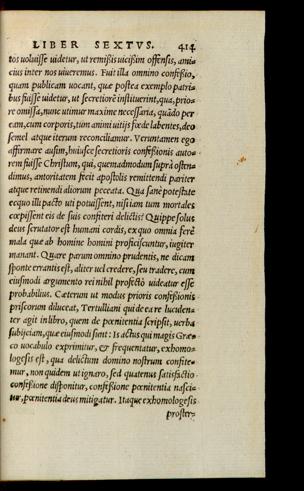 LIBER SEXTVS. 414
tos uoluisse uidetur, ut remißis uicißim offensis, ami-
cius inter nos uiueremus. Fuit illa omnino confeßio,
quam publicam uocant, quæ postea exemplo patri-
bus fuisse uidetur, ut secretiorē instituerint, qua, prio-
re omissa, nunc utimur maxime necessaria, quādo per
eam, cum corporis, tum animi uitijs fœde labentes, deo
semel atque iterum reconciliamur. Veruntamen ego
affirmare ausim, huiusce secretioris confeßionis auto-
rem fuisse Christum, qui, quemadmodum suprà osten-
dimus, autoritatem fecit apostolis remittendi pariter
atque retinendi aliorum peccata. Qua sanè potestate
ecquo illi pacto uti potuissent, nisi iam tum mortales
cœpissent eis de suis confiteri delictis? Quippe solus
deus scrutator est humani cordis, ex quo omnia ferè
mala quæ ab homine homini proficiscuntur, iugiter
manant. Quare parum omnino prudentis, ne dicam
sponte errantis est, aliter uel credere, seu tradere, cum
eiusmodi argumento rei nihil profectò uideatur esse
probabilius. Cæterum ut modus prioris confeßionis
priscorum diluceat, Tertulliani qui de ea re luculen-
ter agit in libro, quem de pœnitentia scripsit, uerba
subijciam, quæ eiusmodi sunt: Is actus qui magis Græ-
co uocabulo exprimitur, & frequentatur, exhomo-
logesis est, qua delictum domino nostrum confite-
mur, non quidem ut ignaro, sed quatenus satisfactio
confeßione disponitur, confeßione pœnitentia nasci-
tur, pœnitentia deus mitigatur. Itaque exhomologesis
proster-